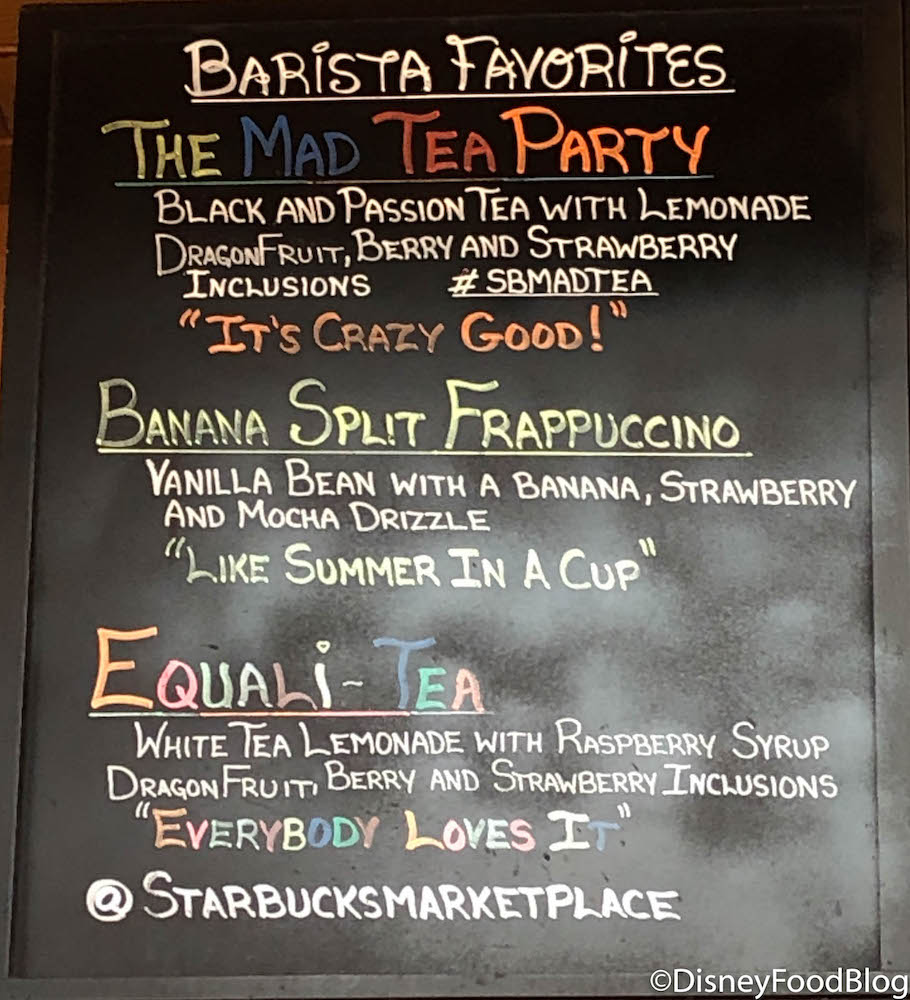 BARISTA FAVORITES
THE MAD TEA PARTY
BLACK AND PASSION TEA WITH LEMONADE
DRAGONFRUIT, BERRY AND STRAWBERRY
INCLUSIONS #SBMADTEA
"IT'S CRAZY GOOD!"
BANANA SPLIT FRAPPUCCINO
VANILLA BEAN WITH A BANANA, STRAWBERRY
AND MOCHA DRIZZLE
"LIKE SUMMER IN A CUP"
EQUALi-TEA
WHITE TEA LEMONADE WITH RASPBERRY SYRUP
DRAGONFRUIT, BERRY AND STRAWBERRY INCLUSIONS
"EVERYBODY LOVES IT"
@STARBUCKSMARKETPLACE
©DisneyFoodBlog